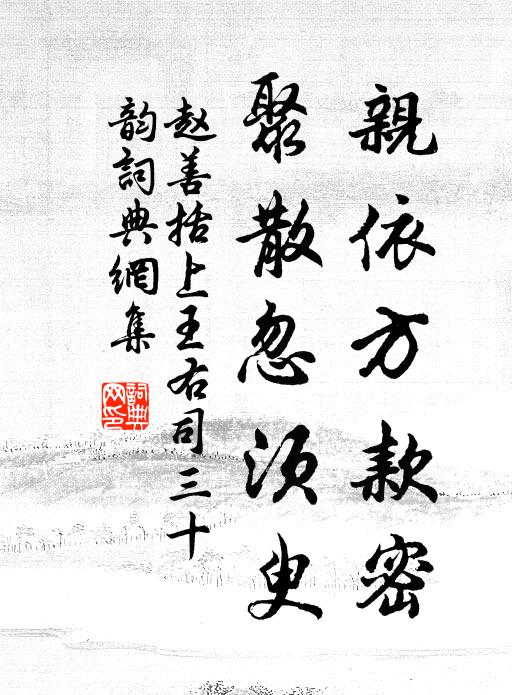 親依方款密
聚散忽須臾
赵善括上王右司三十
韵詞典網集
詞典
网印